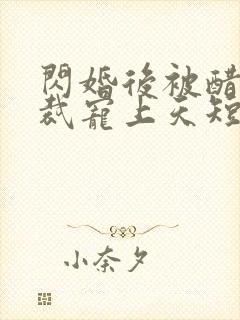 閃婚後被醋
裁寵上天短
小奈夕